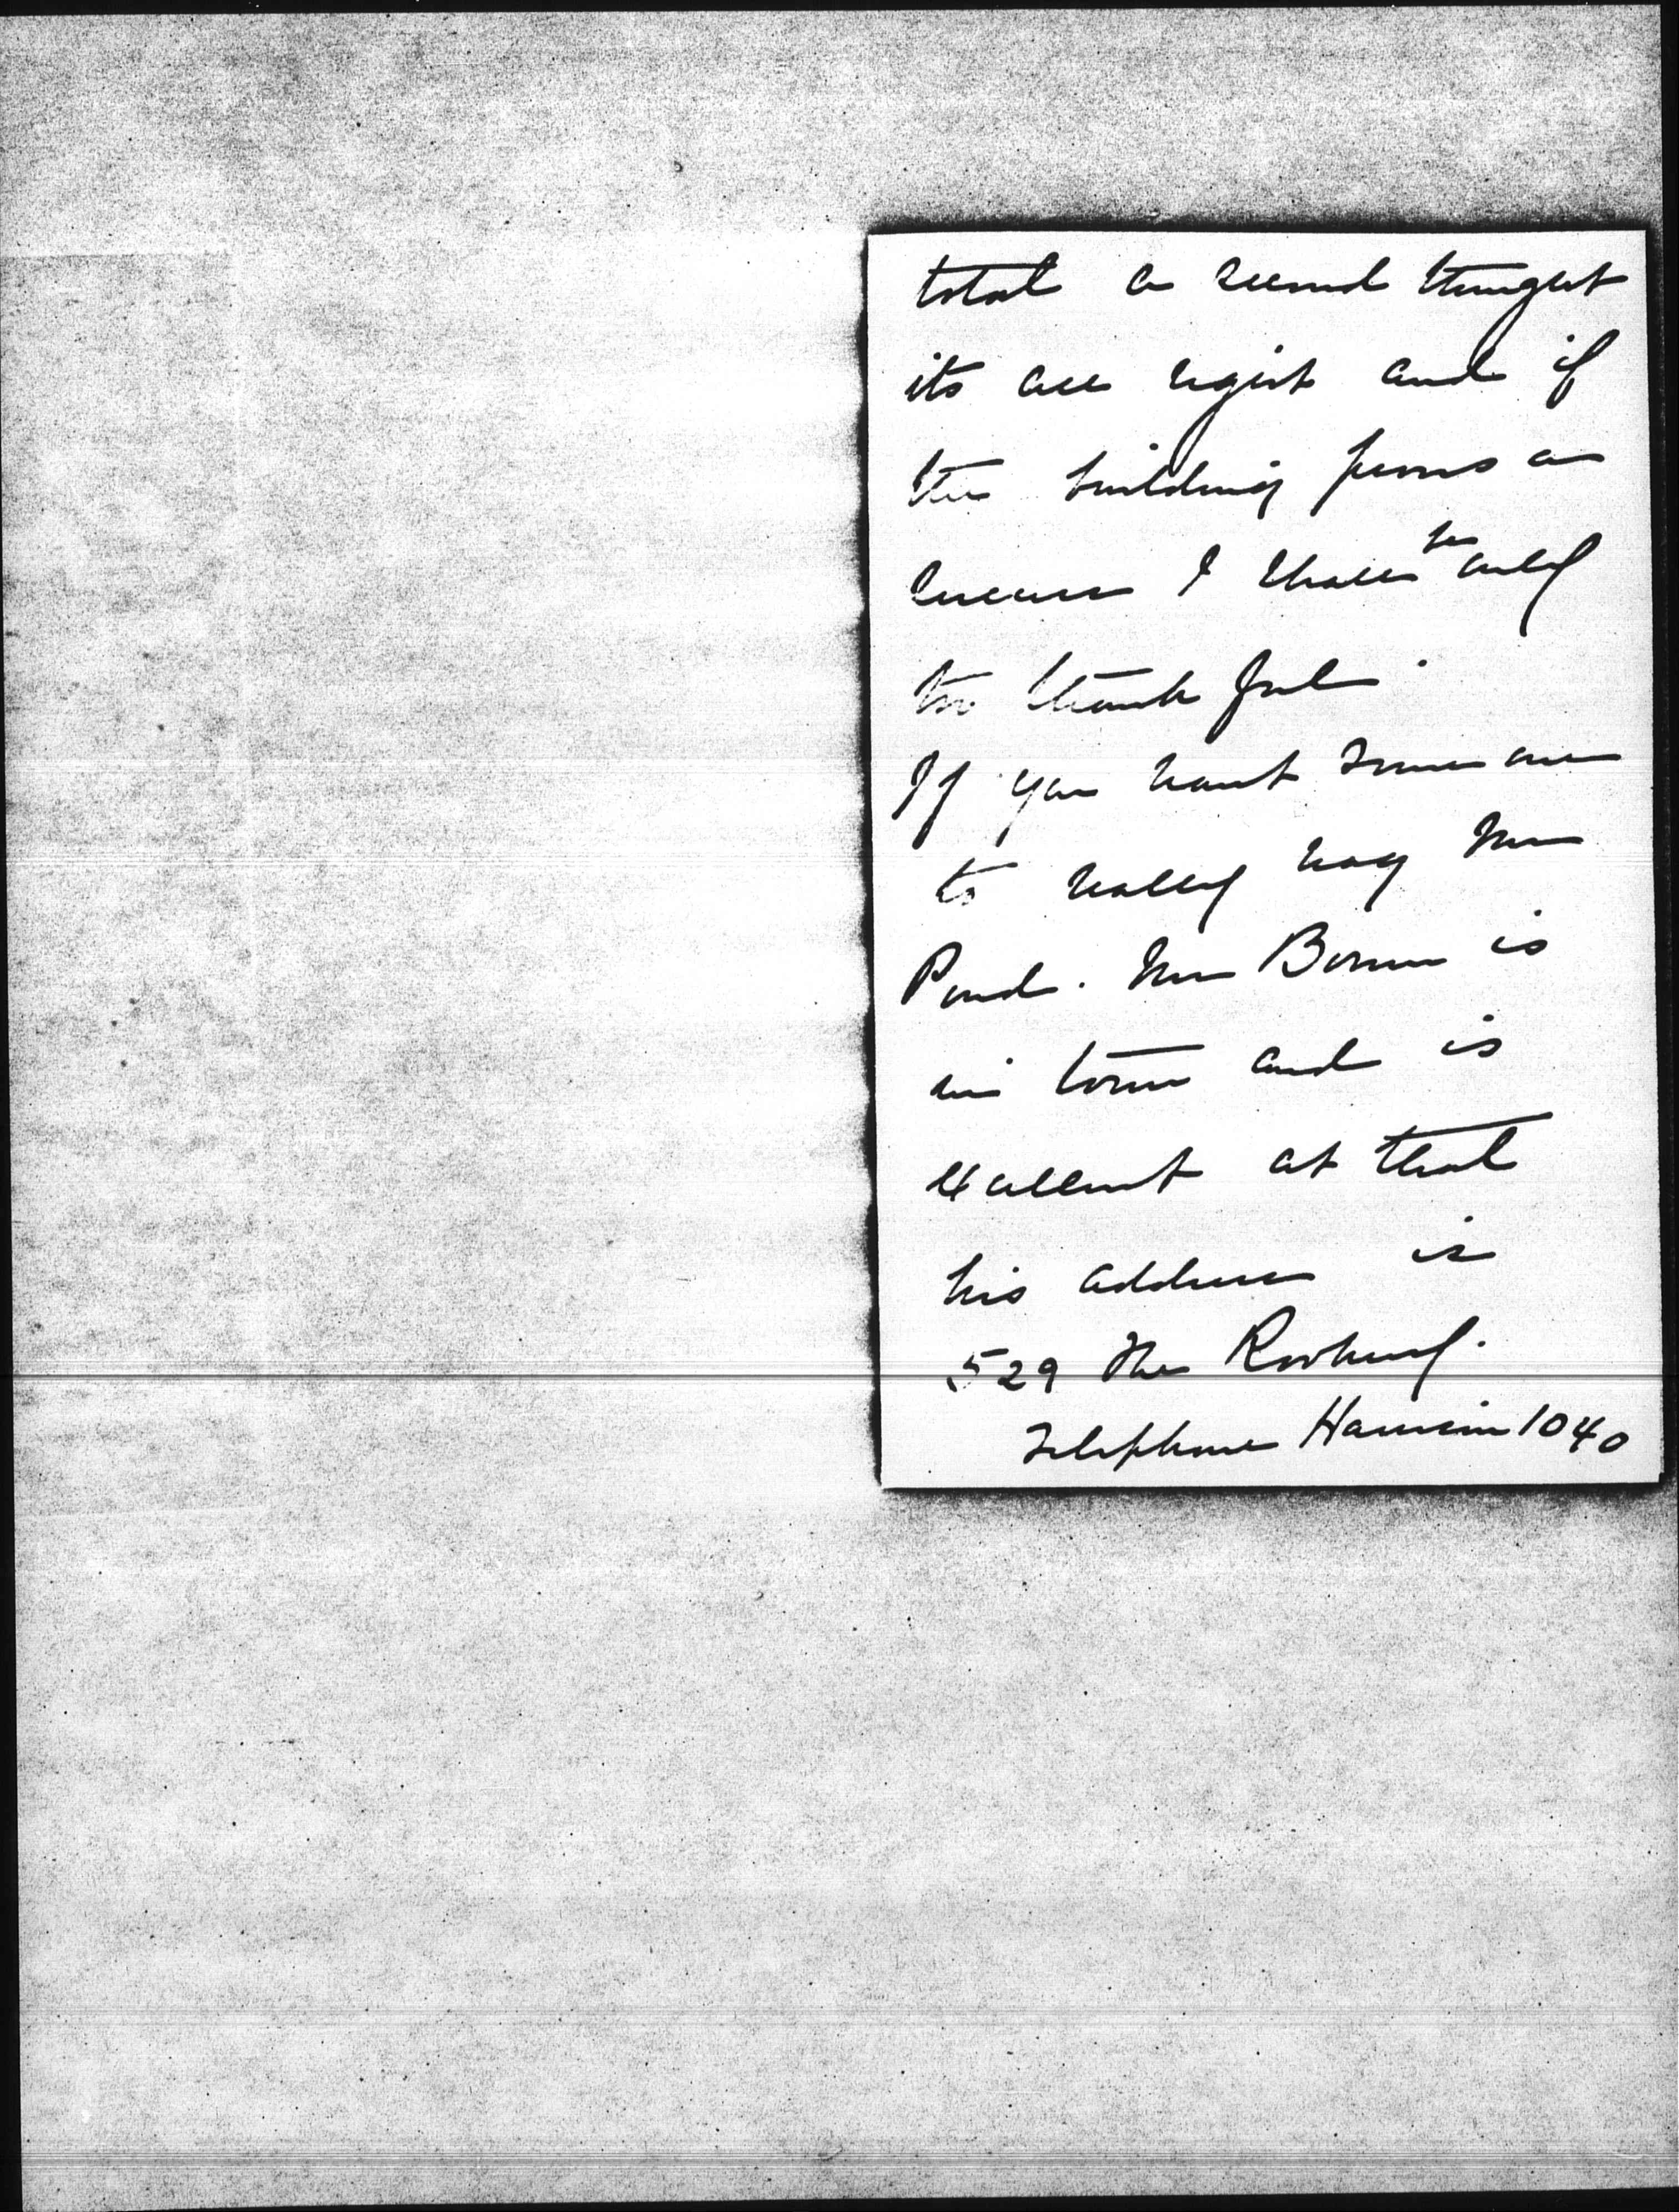 total a second thought
its all right and if
the building proves a
success I shall be only
too thankful.
If you want some one
to really nag Mr
Pond. Mr Borum is
in town and is
excellent at that
his address is
529 The Rookery.
Telephone Harrison 1040